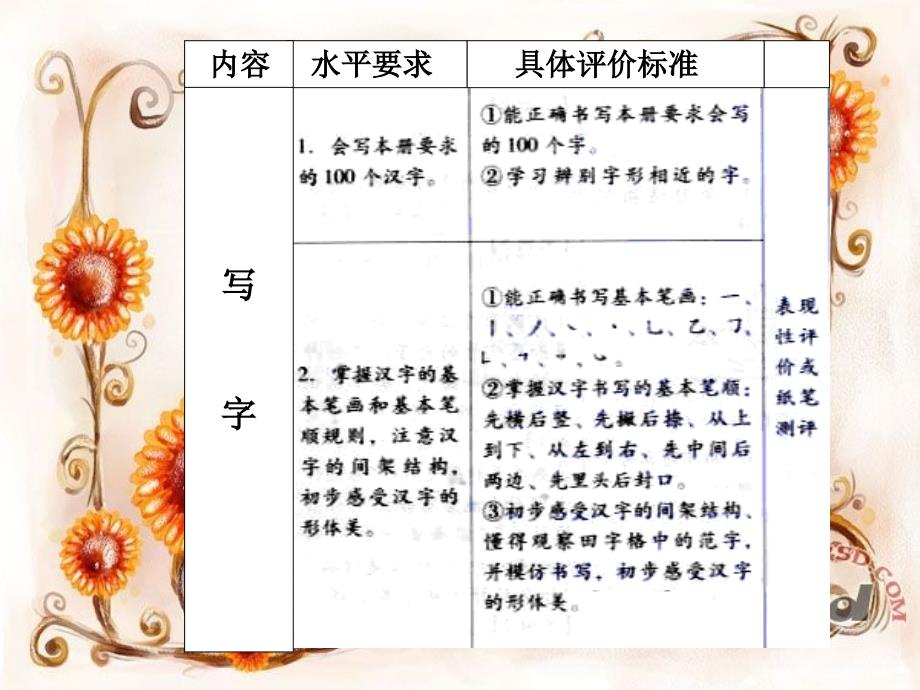 内容 水平要求 具体评价标准
写
字
1. 会写本册要求
的100个汉字。
①能正确书写本册要求会写
的100个字。
②学习辨别字形相近的字。
2. 掌握汉字的基
本笔画和基本笔
顺规则，注意汉
字的间架结构，
初步感受汉字的
形体美。
①能正确书写基本笔画：一、
②掌握汉字书写的基本笔顺：
先横后竖、先撇后捺、从上
到下、从左到右、先中间后
两边、先里头后封口。
③初步感受汉字的间架结构、
懂得观察田字格中的范字，
并模仿书写，初步感受汉字
的形体美。
表现
性评
价或
纸笔
测评